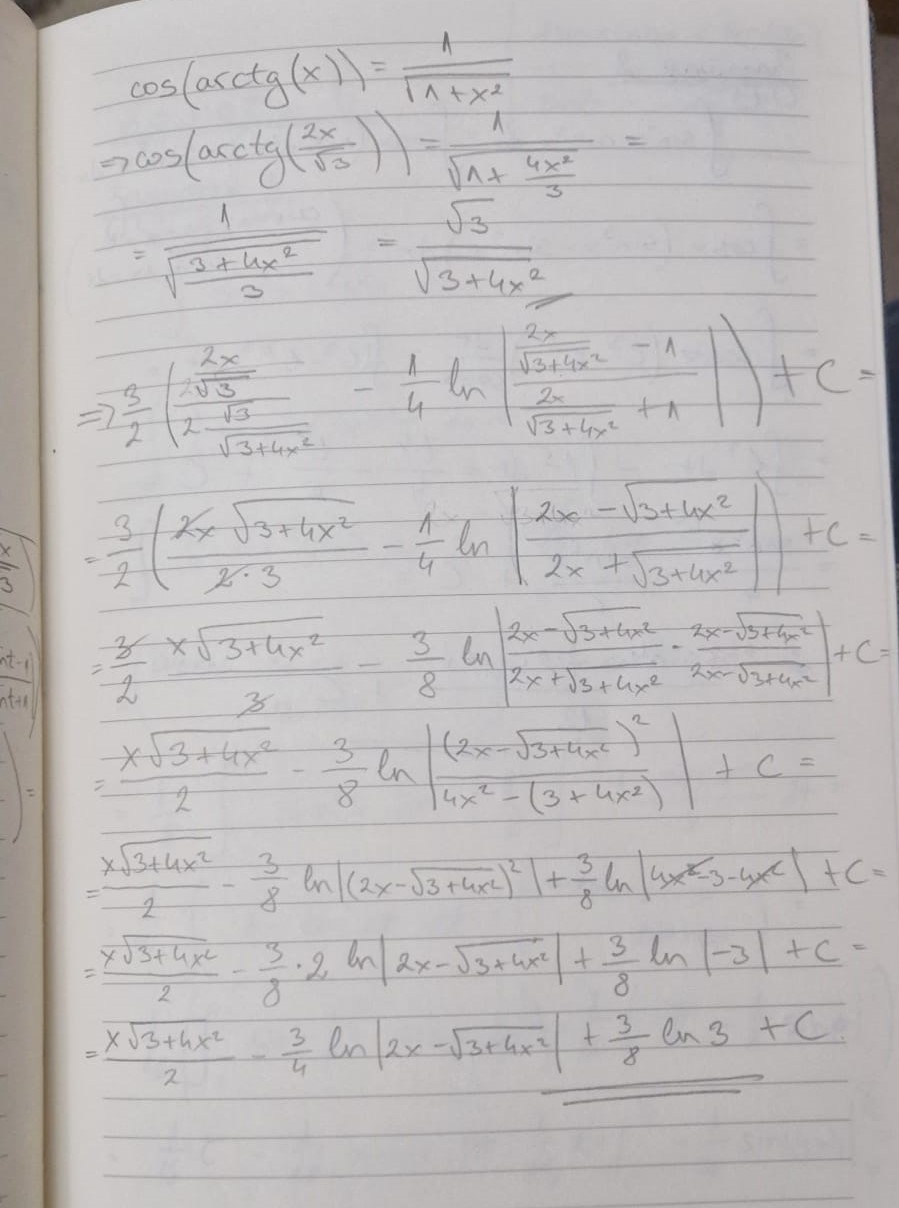 cos(arctg(x)) = 1/√(1+x²)
=> cos(arctg(2x/√3)) = 1/√(1+4x²/3) =
= 1/√((3+4x²)/3) = √3/√(3+4x²)
=> 3/2 ((2x/√3)/(2 √3/√(3+4x²)) - 1/4 ln |(2x/√(3+4x²) - 1)/(2x/√(3+4x²) + 1)|) + C =
= 3/2 (2x √(3+4x²)/(2·3) - 1/4 ln |(2x - √(3+4x²))/(2x + √(3+4x²))|) + C =
= 3/2 x√(3+4x²)/3 - 3/8 ln |(2x-√(3+4x²))/(2x+√(3+4x²)) · (2x-√(3+4x²))/(2x-√(3+4x²))| + C =
= x√(3+4x²)/2 - 3/8 ln |(2x-√(3+4x²))²/(4x²-(3+4x²))| + C =
= x√(3+4x²)/2 - 3/8 ln|(2x-√(3+4x²))²| + 3/8 ln|4x²-3-4x²| + C =
= x√(3+4x²)/2 - 3/8 · 2 ln|2x-√(3+4x²)| + 3/8 ln|-3| + C =
= x√(3+4x²)/2 - 3/4 ln|2x-√(3+4x²)| + 3/8 ln 3 + C